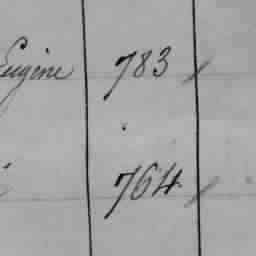 Eugène 783
764